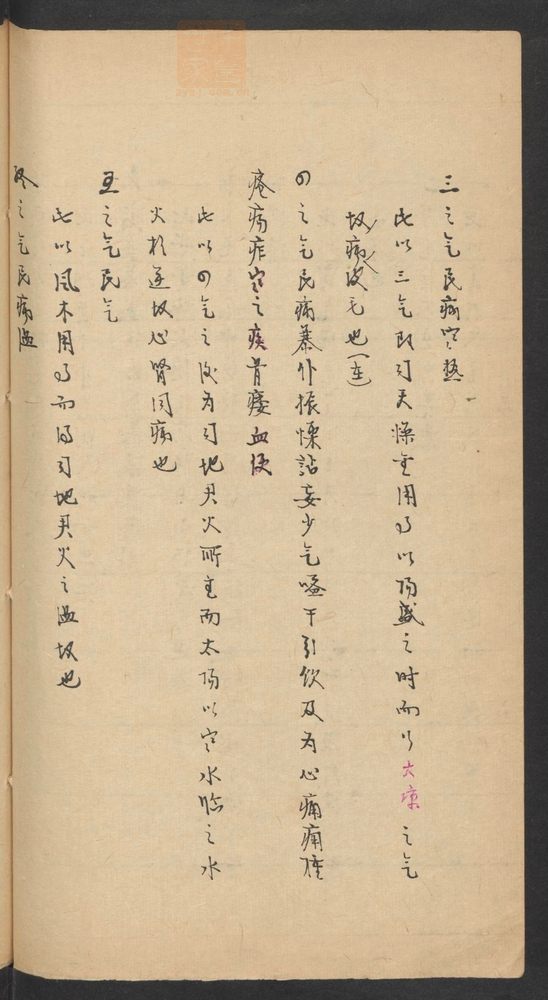 三之气民病寒热
此以三气即司天燥金用多以陽盛之时而以大凉之气
故病皮毛也
の之气民病暴仆振慄譫妄少气嗌干引饮及为心痛痈肿
疮疡疟寒之疾骨痿血便
此以の气之後为司地君火所主而太陽以寒水临之水
火相逆故心腎同病也
五之气民气
此以風木用多而得司地君火之温故也
终之气民病温